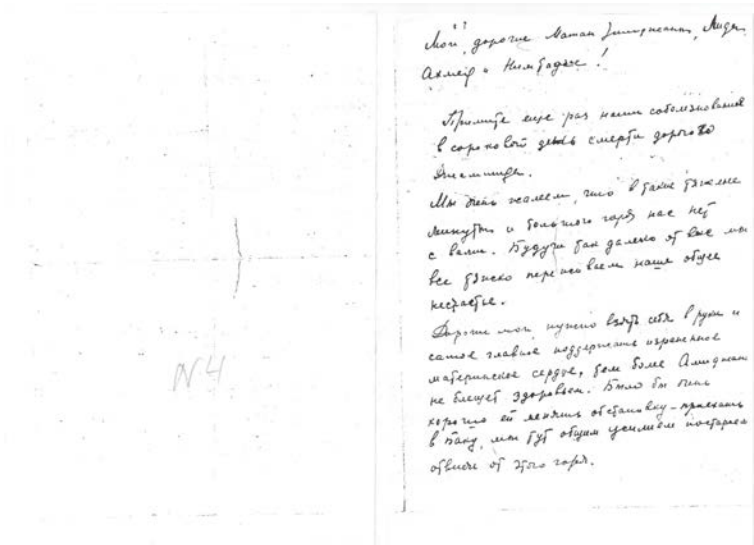 Мои дорогие Матан Лида
Ахмед и !
Примите еще раз наши соболезнования
в сороковой день смерти дорогого
Мы очень жалеем, что в такие тяжелые
минуты и большого горя нас нет
с вами. Будучи так далеко от вас мы
все тяжко переживаем наше общее
несчастье.
Дорогие мои, нужно взять себя в руки и
самое главное поддержать израненное
материнское сердце, тем более
не блещет здоровьем. Было бы очень
хорошо ей менять обстановку - приехать
в Баку, мы тут общим усилием постараем
отвлечь от этого горя.
N4